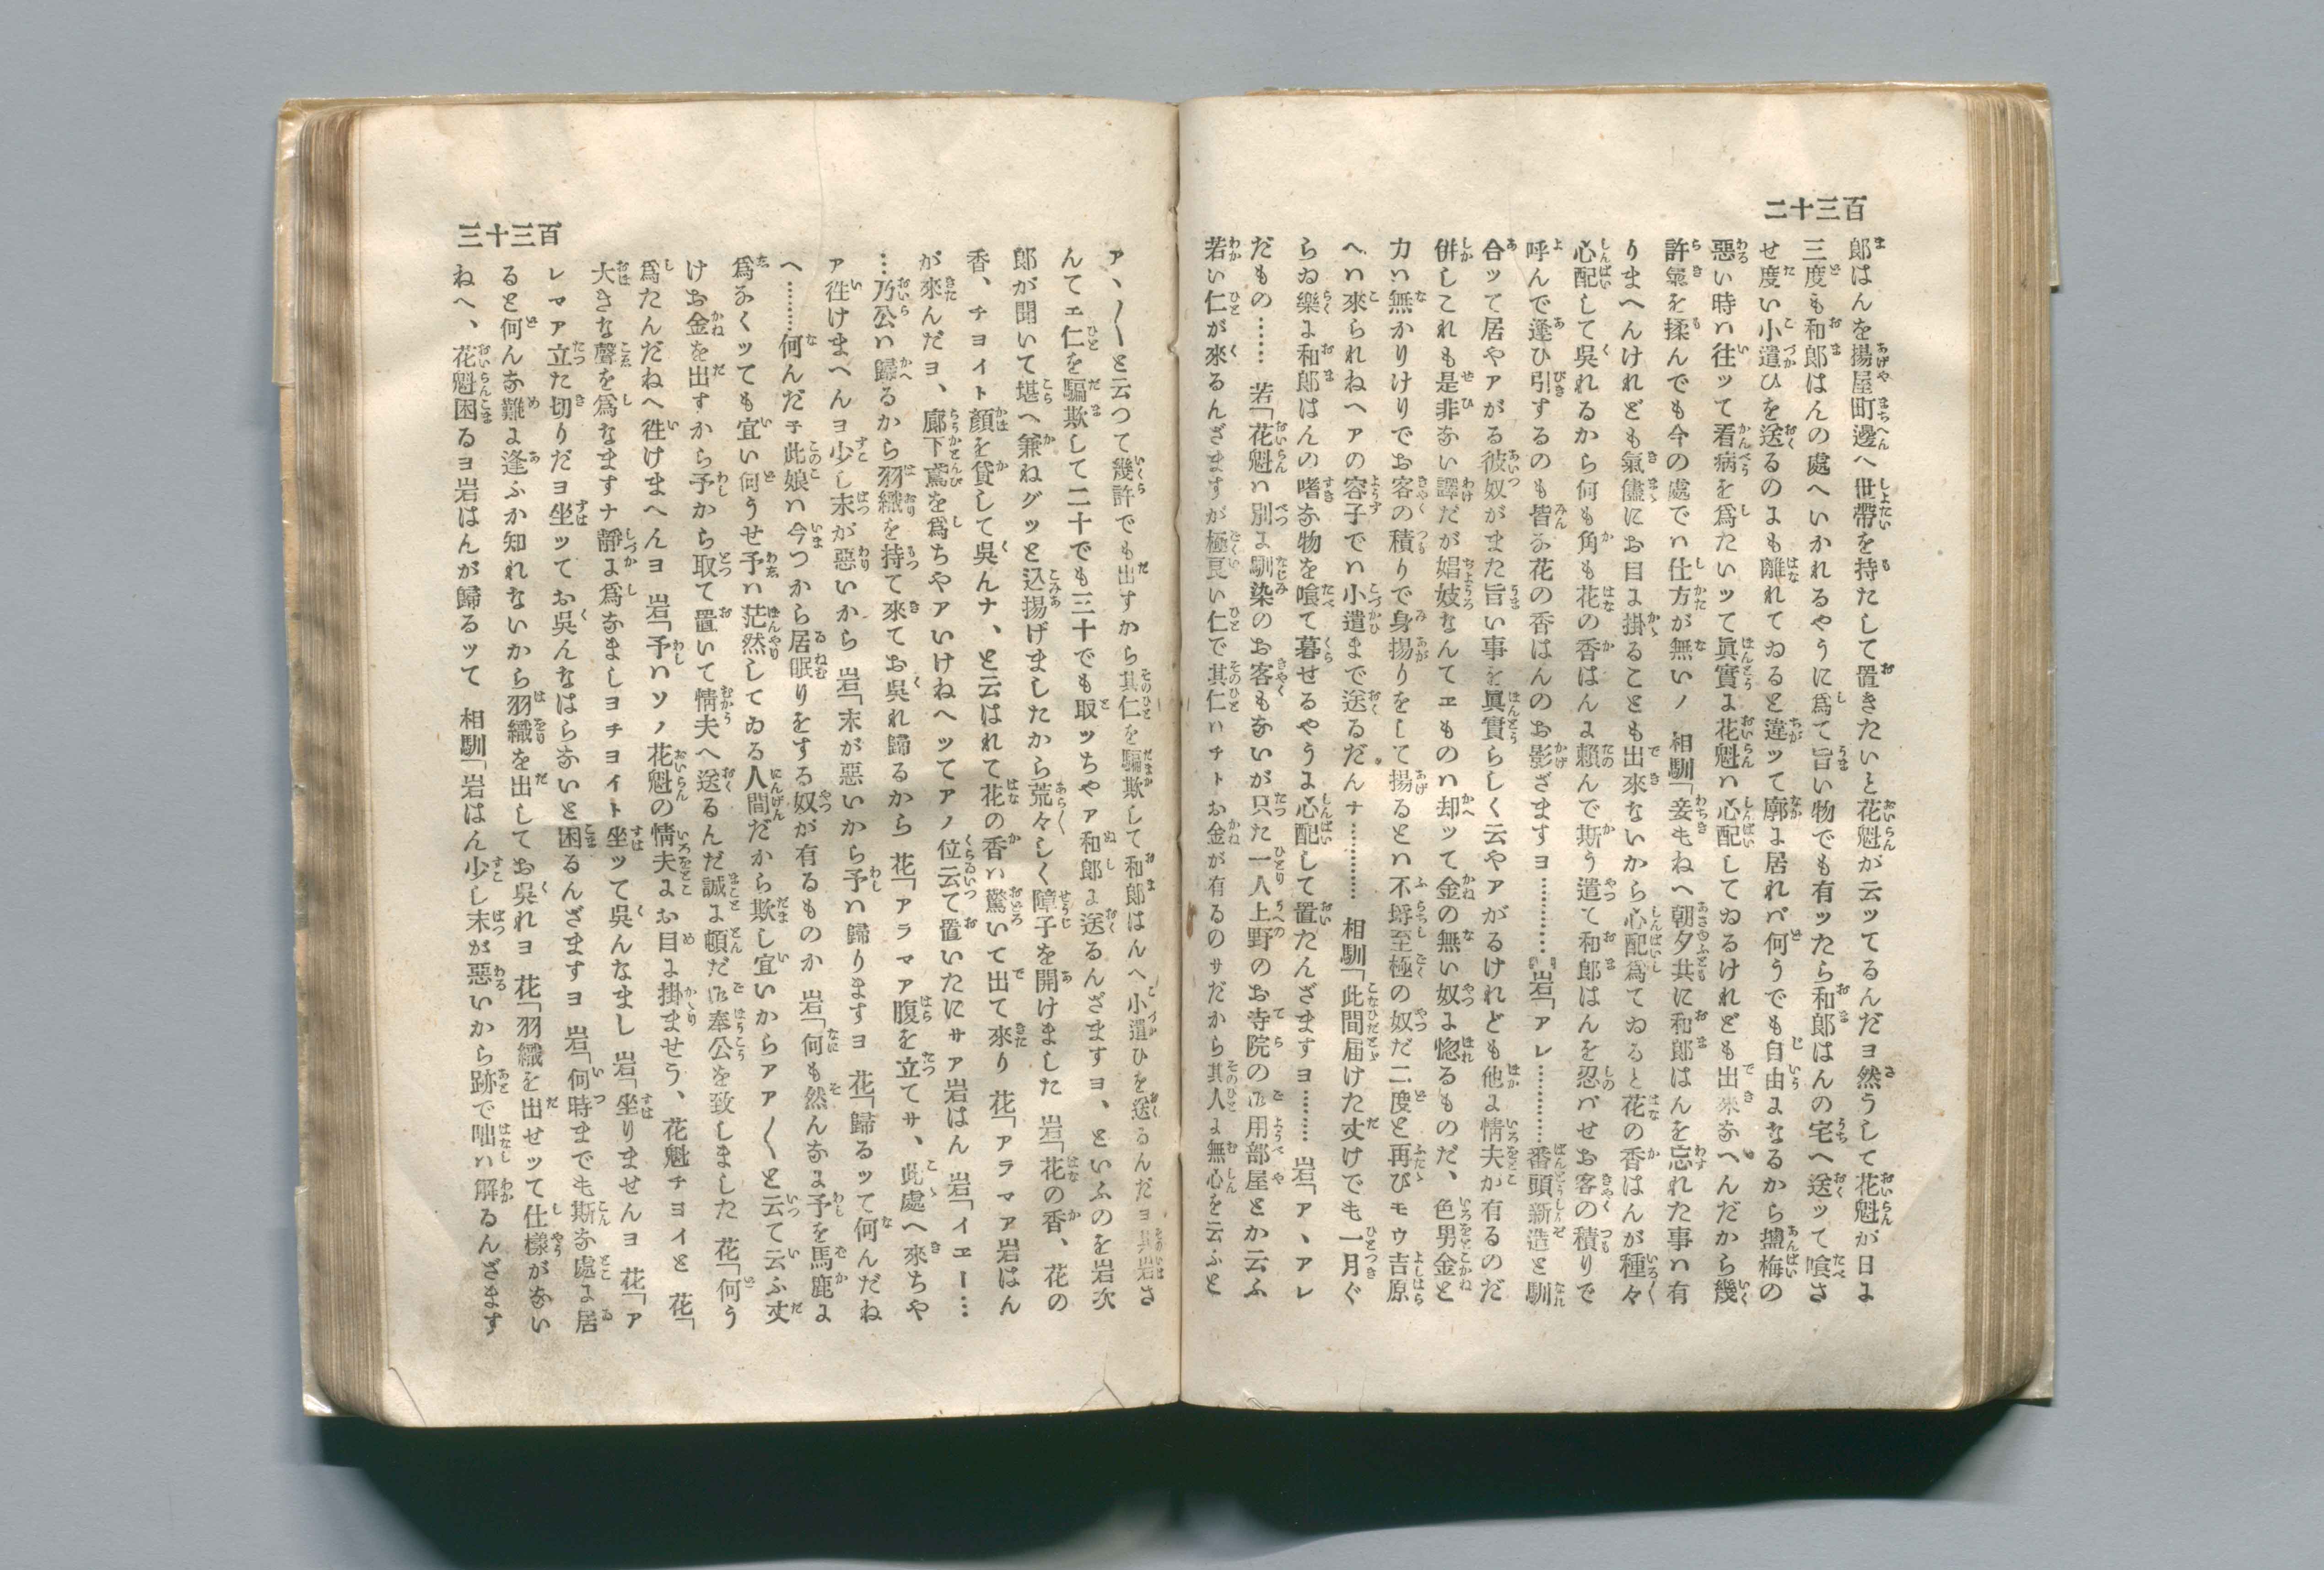 百三十二
郎はんを揚屋町邊へ世帶を持たして置きたいと花魁が云ツてるんだヨ然うして花魁が日よ
三度も和郎はんの處へいかれるやうに爲て旨い物でも有ツたら和郎はんの宅へ送ツて喰さ
せ度い小遣ひを送るのよも離れてゐると違ツて廓よ居れバ何うでも自由よなるから塩梅の
惡い時ハ往ツて看病を爲たいツて眞實よ花魁ハ心配してゐるけれども出來なへんだから幾
許氣を揉んでも今の處でハ仕方が無いノ 相馴「妾もねへ朝夕共に和郎はんを忘れた事ハ有
りまへんけれども氣儘にお目よ掛ることも出來ないから心配爲てゐると花の香はんが種々
心配して呉れるから何も角も花の香はんよ賴んで斯う遣て和郎はんを忍バせお客の積りで
呼んで逢ひ引するのも皆な花の香はんのお影ざますヨ…………岩「アレ…………番頭新造と馴
合ツて居やアがる彼奴がまた旨い事を眞實らしく云やアがるけれども他よ情夫が有るのだ
併しこれも是非ない譯だが娼妓なんてエものハ却ツて金の無い奴よ惚るものだ、色男金と
力ハ無かりけりでお客の積りで身揚りをして揚るとハ不埒至極の奴だ二度と再びモウ吉原
へハ來られねへアの容子でハ小遣まで送るだんナ………… 相馴「此間届けた丈けでも一月ぐ
らゐ樂よ和郎はんの嗜な物を喰て暮せるやうよ心配して置たんざますヨ……… 岩「アヽアレ
だもの…… 若「花魁ハ別よ馴染のお客もないが只た一人上野のお寺院の御用部屋とか云ふ
若い仁が來るんざますが極良い仁で其仁ハチトお金が有るのサだから其人よ無心を云ふと
百三十三
アヽ〱と云つて幾許でも出すから其仁を騙欺して和郎はんへ小遣ひを送るんだヨ其岩さ
んてエ仁を騙欺して二十でも三十でも取ツちやア和郎よ送るんざますヨ、といふのを岩次
郎が聞いて堪へ兼ねグツと込揚げましたから荒々しく障子を開けました 岩「花の香、花の
香、チヨイト顔を貸して呉んナ、と云はれて花の香ハ驚いて出て來り 花「アラマア岩はん
が來んだヨ、廊下鳶を爲ちやアいけねへツてアノ位云て置いたにサア岩はん 岩「イエー…
…乃公ハ歸るから羽織を持て來てお呉れ歸るから 花「アラマア腹を立てサ、此處へ來ちや
ア徃けまへんヨ少し末が惡いから 岩「末が惡いから予ハ歸りますヨ 花「歸るツて何んだね
へ………何んだ子此娘ハ今つから居眠りをする奴が有るものか 岩「何も然んなよ予を馬鹿よ
爲なくツても宜い何うせ予ハ茫然してゐる人間だから欺し宜いからアア〱と云て云ふ丈
けお金を出すから予から取て置いて情夫へ送るんだ誠よ頓だ御奉公を致しました 花「何う
爲たんだねへ徃けまへんヨ 岩「予ハソノ花魁の情夫よお目よ掛ませう、花魁チヨイと 花「
大きな聲を爲なますナ靜よ爲なましヨチヨイト坐ツて呉んなまし 岩「坐りませんヨ 花「ア
レマア立た切りだヨ坐ツてお呉んなはらないと困るんざますヨ 岩「何時までも斯な處よ居
ると何んな難よ逢ふか知れないから羽織を出してお呉れヨ 花「羽織を出せツて仕樣がない
ねへ、花魁困るヨ岩はんが歸るツて 相馴「岩はん少し末が惡いから跡で咄ハ解るんざます